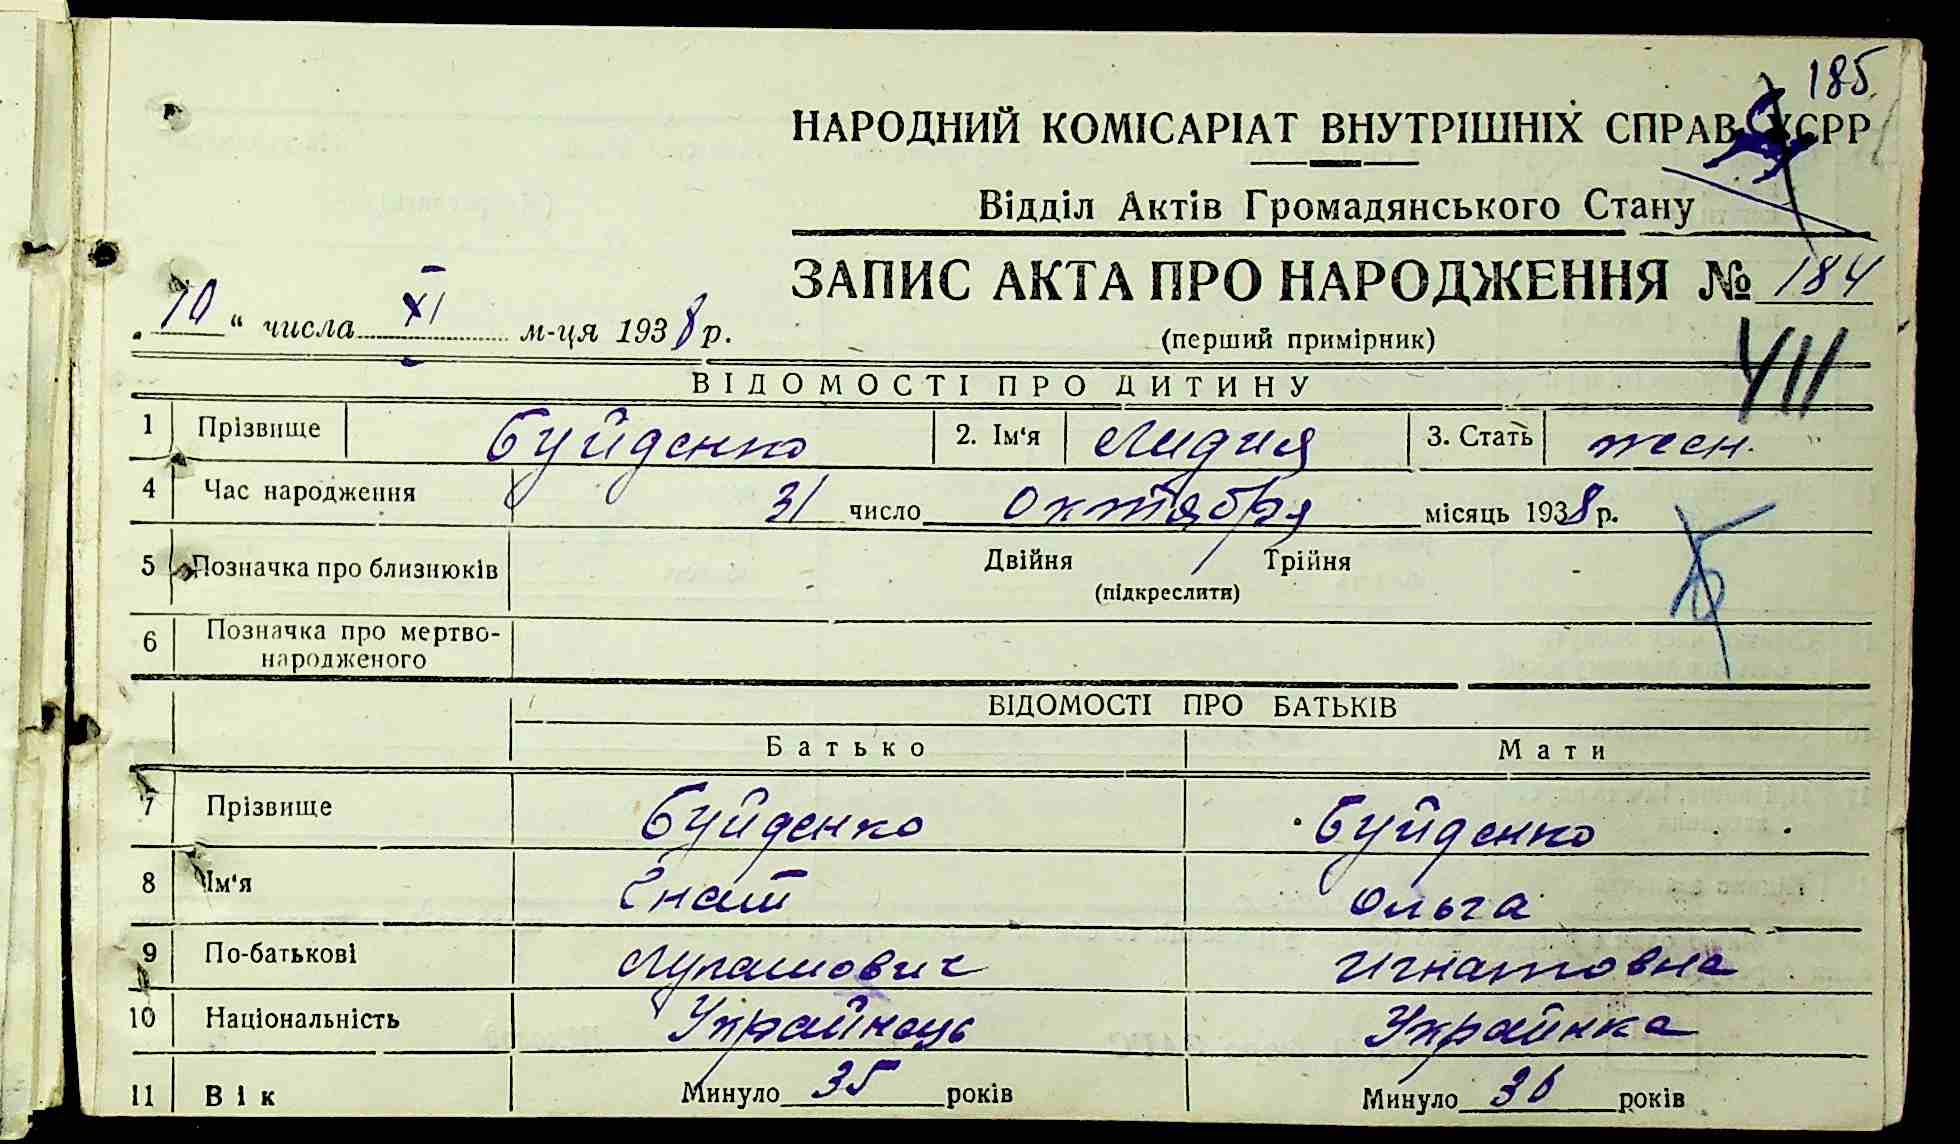 185
НАРОДНИЙ КОМІСАРІАТ ВНУТРІШНІХ СПРАВ УСРР
Відділ Актів Громадянського Стану
ЗАПИС АКТА ПРО НАРОДЖЕННЯ № 184
„10“ числа XI м-ця 1938 р.
(перший примірник)
ВІДОМОСТІ ПРО ДИТИНУ
1 Прізвище Буйденко 2. Ім'я Лидия 3. Стать жен.
4 Час народження 31 число октября місяць 1938 р.
5 Позначка про близнюків Двійня Трійня
(підкреслити)
6 Позначка про мертво-
народженого
ВІДОМОСТІ ПРО БАТЬКІВ
Батько Мати
7 Прізвище Буйденко Буйденко
8 Ім'я Гнат Ольга
9 По-батькові Игнатовна
10 Національність Украйнець Украинка
11 Вік Минуло 35 років Минуло 36 років